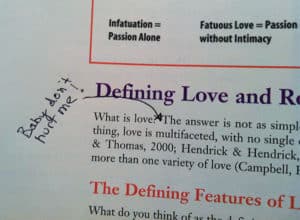 Infatuation =
Passion Alone
Fatuous Love = Passion
without Intimacy
Baby don't
hurt me!
Defining Love and Re
What is love? The answer is not as simpl
thing, love is multifaceted, with no single
& Thomas, 2000; Hendrick & Hendrick,
more than one variety of love (Campbell,
The Defining Features of L
What do you think of as the